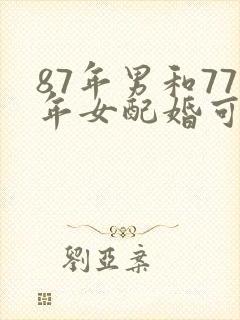 87年男和77
年女配婚可
劉亞案